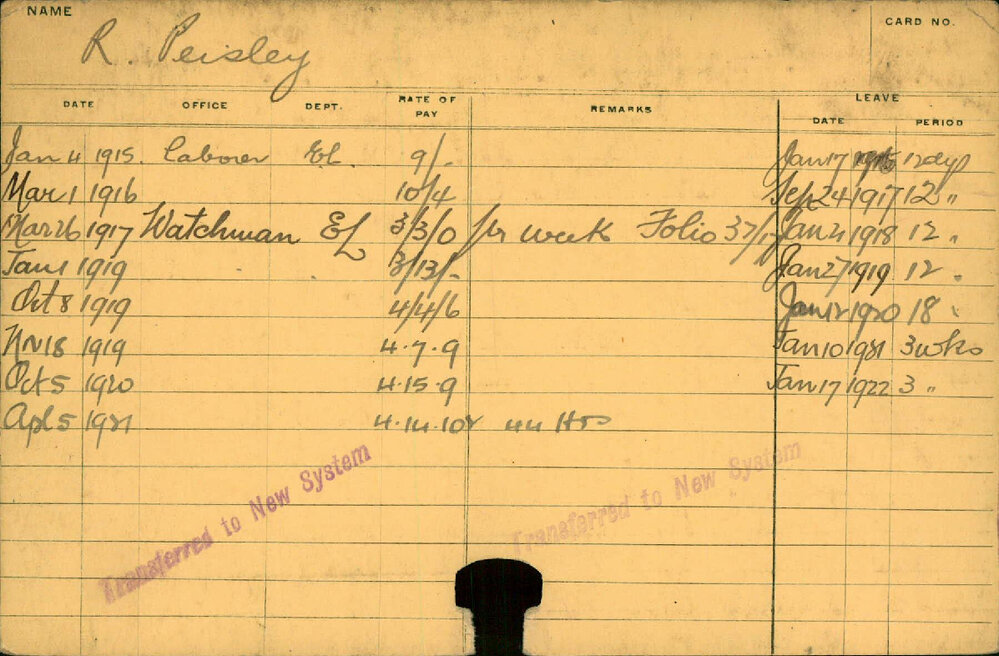 NAME
CARD NO.
R. Peisley
DATE OFFICE DEPT. RATE OF PAY REMARKS LEAVE DATE PERIOD
Jan 4 1915. Laborer EL. 9/- Jan 17 12 dys
Mar 1 1916 10/4 Sep 24 1917 12 "
Mar 26 1917 Watchman EL 3/3/0 per week Folio 37/ Jan 21 1918 12 "
Jan 1 1919 3/13/- Jan 27 1919 12 "
Oct 8 1919 4/4/6 Jan 12 1920 18 "
Nov 18 1919 4.7.9 Jan 10 1921 3 wks
Oct 5 1920 4.15.9 Jan 17 1922 3 "
Apl 5 1921 4.14.10 44 Hrs
Transferred to New System
Transferred to New System